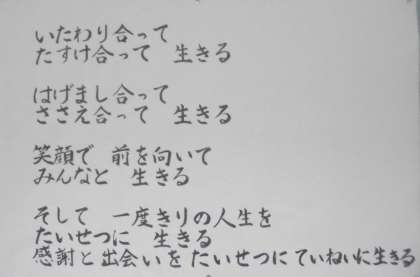 いたわり合って
たすけ合って　生きる
はげまし合って
ささえ合って　生きる
笑顔で　前を向いて
みんなと　生きる
そして　一度きりの人生を
たいせつに　生きる
感謝と出会いをたいせつにていねいに生きる